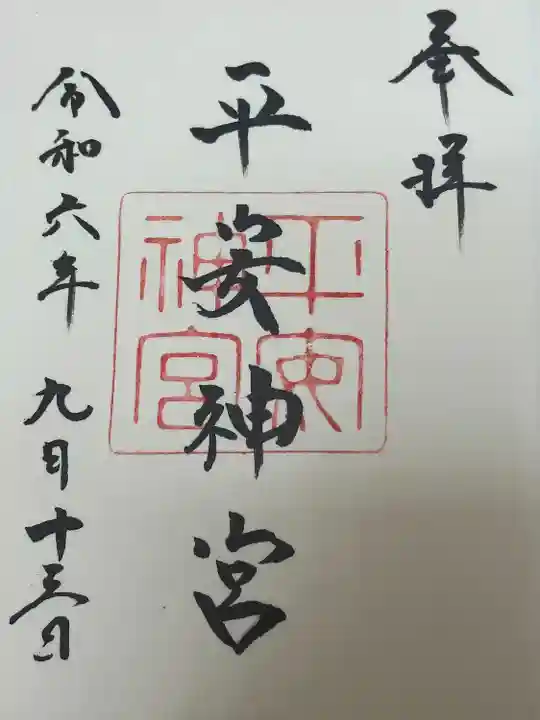 奉拝
平安神宮
平安神宮
令和六年九月十三日